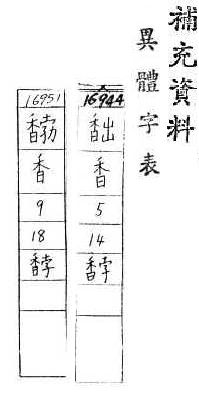 補充資料
異體字表
16944
香
5
14
馞
16951
香
9
18
馞